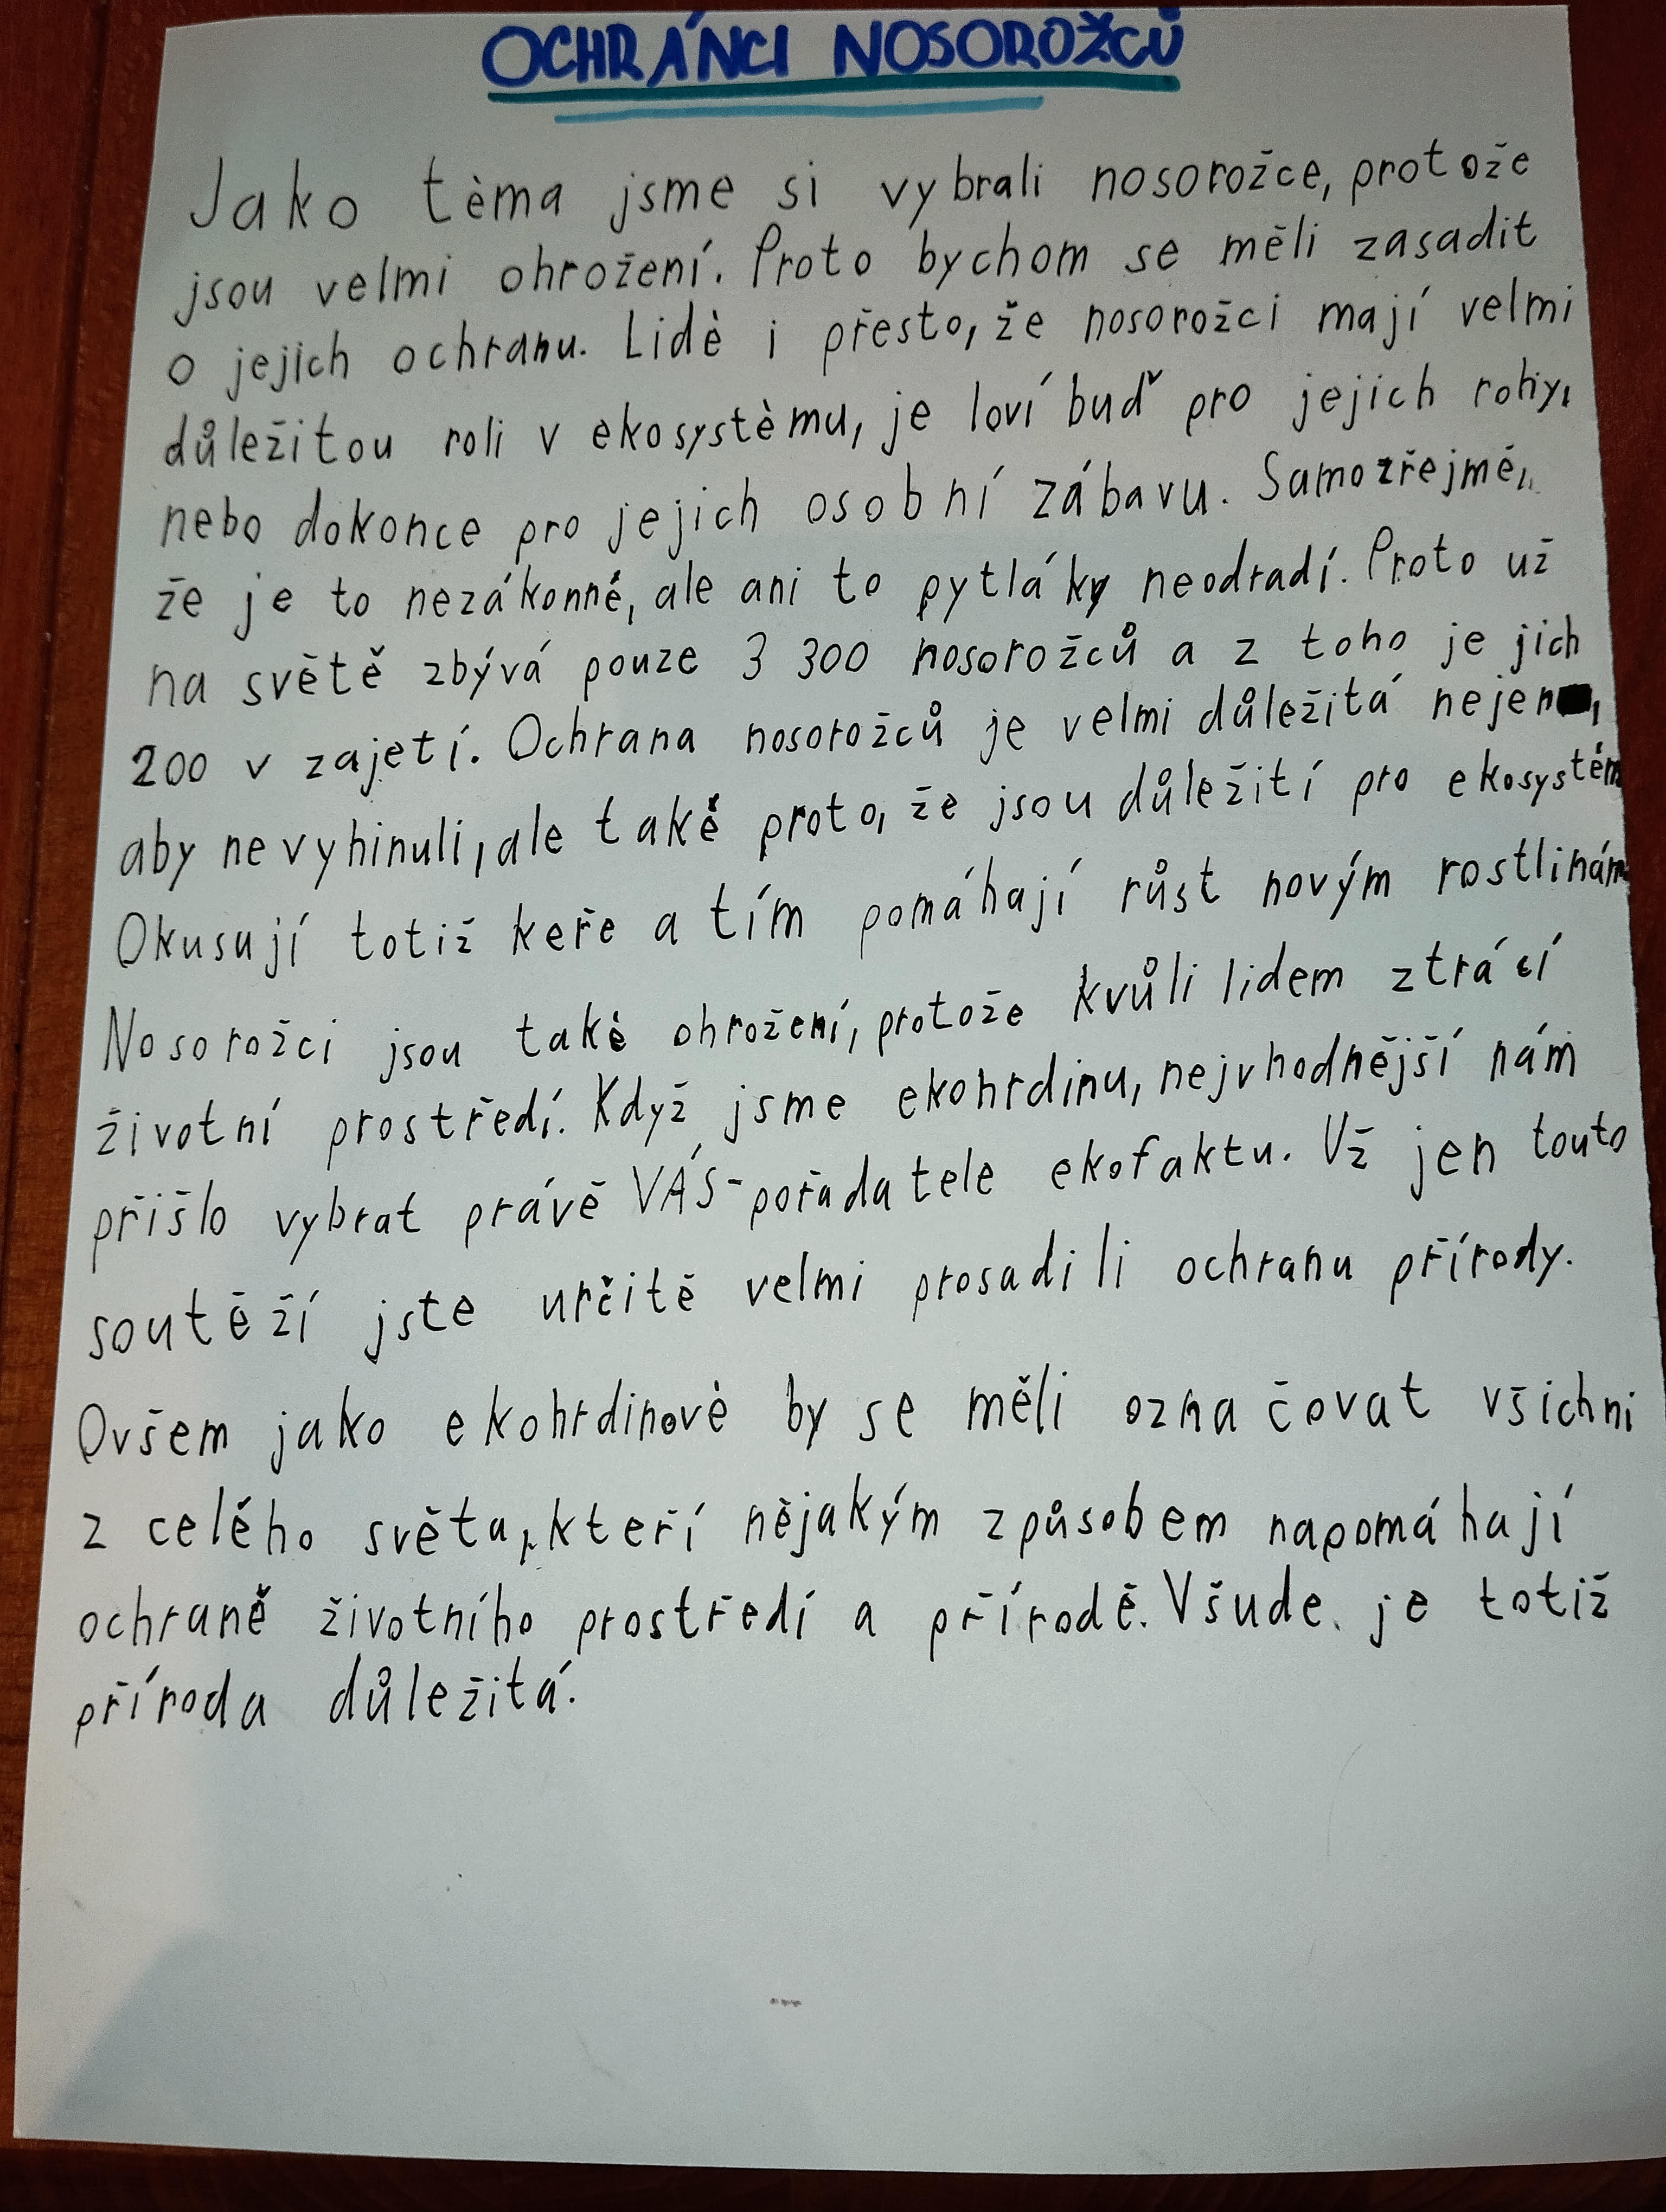 OCHRÁNCI NOSOROŽCŮ
Jako téma jsme si vybrali nosorožce, protože
jsou velmi ohrožení. Proto bychom se měli zasadit
o jejich ochranu. Lidé i přesto, že nosorožci mají velmi
důležitou roli v ekosystému, je loví buď pro jejich rohy,
nebo dokonce pro jejich osobní zábavu. Samozřejmě,
že je to nezákonné, ale ani to pytláky neodradí. Proto už
na světě zbývá pouze 3 300 nosorožců a z toho je jich
200 v zajetí. Ochrana nosorožců je velmi důležitá nejen,
aby nevyhinuli, ale také proto, že jsou důležití pro ekosystém
Okusují totiž keře a tím pomáhají růst novým rostlinám
Nosorožci jsou také ohrožení, protože kvůli lidem ztrácí
životní prostředí. Když jsme ekohrdinu, nejvhodnější nám
přišlo vybrat právě VÁS-pořadatele ekofaktu. Už jen touto
soutěží jste určitě velmi prosadili ochranu přírody.
Ovšem jako ekohrdinové by se měli označovat všichni
z celého světa, kteří nějakým způsobem napomáhají
ochraně životního prostředí a přírodě. Všude je totiž
příroda důležitá.